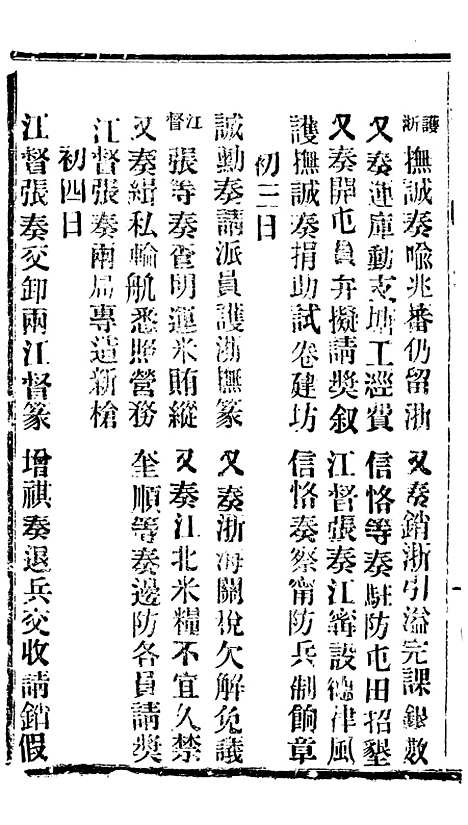 護浙撫誠奏喻兆蕃仍留浙 又奏銷浙引溢完課銀數
又奏運庫動支塘工經費 信恪等奏駐防屯田招墾
又奏開屯員弁擬請獎叙 江督張奏江寗設德律風
護撫誠奏捐助試卷建坊 信恪奏察甯防兵制餉章
初三日
誠勳奏請派員護浙撫篆 又奏浙海關稅欠解免議
江督張等奏查明運米賄縱 又奏江北米糧不宜久禁
又奏緝私輪航悉照營務 奎順等奏邊防各員請獎
江督張奏兩局專造新槍
初四日
江督張奏交卸兩江督篆 增祺奏退兵交收請銷假